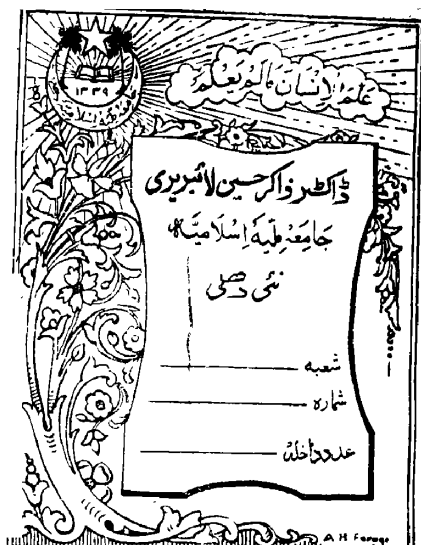 عَلَّمَ الْاِنْسَانَ مَالَمْ يَعْلَمْ
۱۳۳۹
ڈاکٹر ذاکر حسین لائبریری
جَامِعَہ مِلّیَہ اِسْلَامِیَہ
نئی دھلی
شعبہ
شمارہ
عدد داخلہ
A H Faruqe